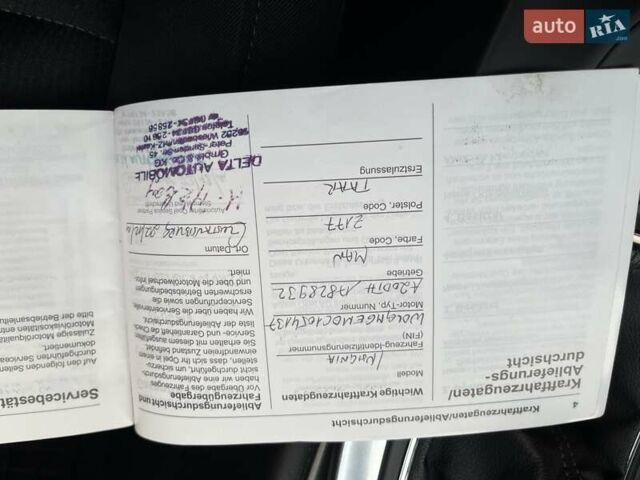 auto RIA .com
4
Kraftfahrzeugaten/Ablieferungsdurchsicht
Kraftfahrzeugaten/
Ablieferungs-
durchsicht
Wichtige Kraftfahrzeugdaten
Modell
INSIGNIA
Fahrzeug-Identifizierungsnummer
(FIN)
Motor-Typ, Nummer
A20DTH
Getriebe
MAN
Farbe, Code
2177
Polster, Code
TAAR
Erstzulassung
Ablieferungsdurchsicht und
Fahrzeugübergabe
Vor Übergabe des Fahrzeuges
haben wir eine Ablieferungs-
durchsicht durchgeführt, um sicherzu-
stellen, dass sich Ihr Opel in einem
einwandfreien Zustand befindet.
Sie erhalten mit diesem ausgefüllten
Service- und Garantieheft die Check-
liste der Ablieferungsdurchsicht.
Wir haben Sie über die Serviceintervalle,
Serviceprüfungen sowie die
erschwerten Betriebsbedingungen
und über die Motorölwechsel infor-
miert.
Ort, Datum
DELTA AUTOMOBILE
GmbH & Co. KG
Peter-Sander-Str. 45
55252 Wiesbaden/MZ-Kastel
Servicebestät
Auf den folgenden Seiten
durchgeführten Servicear
Zulässige Motorölqualität
Motorölviskositäten entn
bitte der Betriebsanleitu